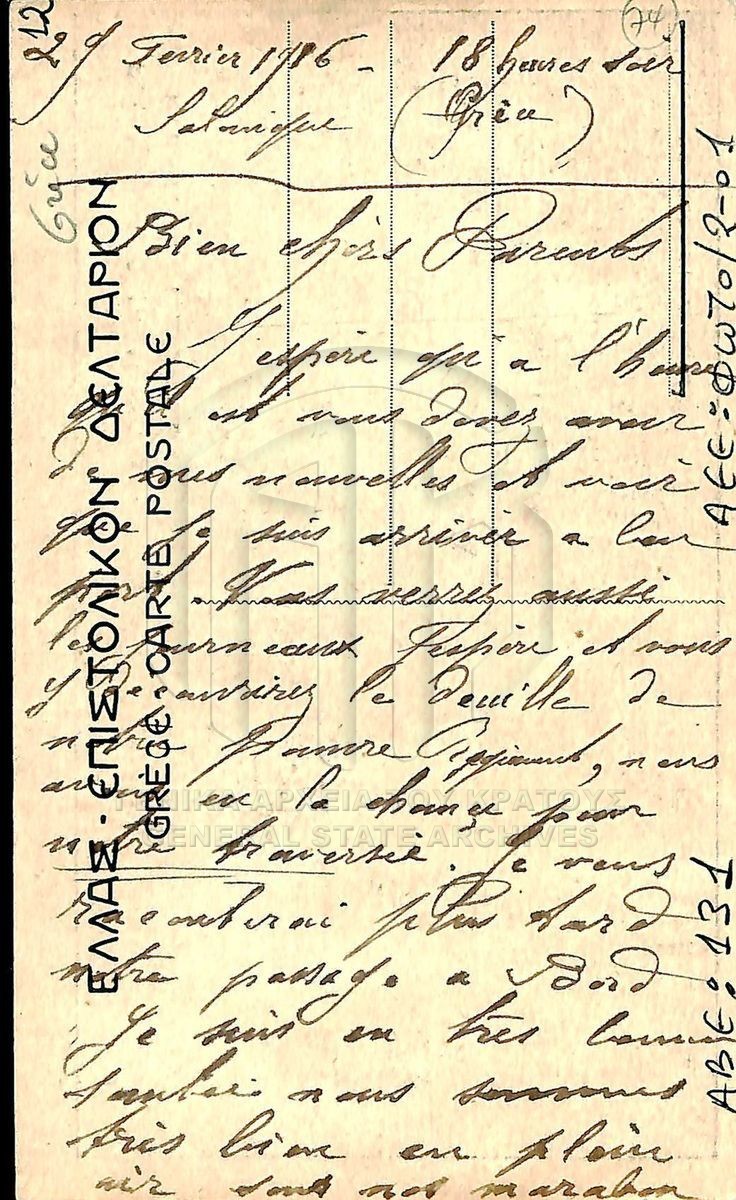 12
29 Fevrier 1916 - 18 heures soir
74
Salonique (Grèce)
Grèce
Bien chèrs Parents
J'espère qu'a l'heure
qu'il est vous devez avoir
de mes nouvelles et voir
que je suis arriver a bon
port. Vous verrez aussi
les journeaux J'espère et vous
y decouvrirez le deuille de
notre pauvre Regiment, nous
avons eu la chance pour
notre traversée. Je vous
raconterai plus tard
notre passage a Bord
Je suis en très bonne
santé nous sommes
très bien en plein
air sous nos marabou
ΕΛΛΑΣ · ΕΠΙΣΤΟΛΙΚΟΝ ΔΕΛΤΑΡΙΟΝ
GRÈCE · CARTE POSTALE
ΑΕΕ: ΦΩΤΟ/2-01
ΑΒΕ: 131
ΓΕΝΙΚΑ ΑΡΧΕΙΑ ΤΟΥ ΚΡΑΤΟΥΣ
GENERAL STATE ARCHIVES